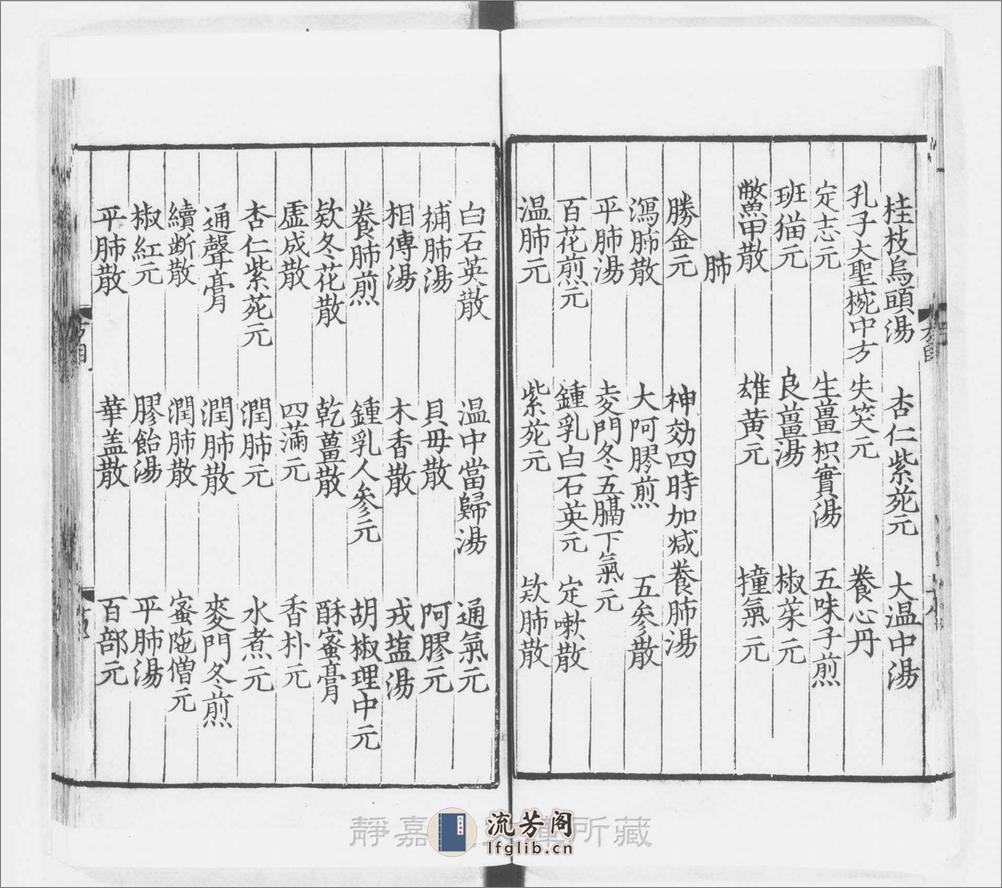 桂枝烏頭湯 杏仁紫菀元 大温中湯
孔子大聖椀中方 失笑元 養心丹
定志元 生薑枳實湯 五味子煎
班猫元 良薑湯 椒茱元
鱉甲散 雄黄元 撞氣元
肺
勝金元 神効四時加减養肺湯
瀉肺散 大阿膠煎 五參散
平肺湯 麦門冬五膈下氣元
百花煎元 鍾乳白石英元 定嗽散
温肺元 紫菀元 欵肺散
白石英散 温中當歸湯 通氣元
補肺湯 貝母散 阿膠元
相傳湯 木香散 戎塩湯
養肺煎 鍾乳人參元 胡椒理中元
欵冬花散 乾薑散 酥蜜膏
盧成散 四滿元 香朴元
杏仁紫菀元 潤肺元 水煮元
通聲膏 潤肺散 麥門冬煎
續断散 潤肺散 蜜陁僧元
椒紅元 膠飴湯 平肺湯
平肺散 華盖散 百部元
靜嘉 所藏
流芳阁
lfglib.cn